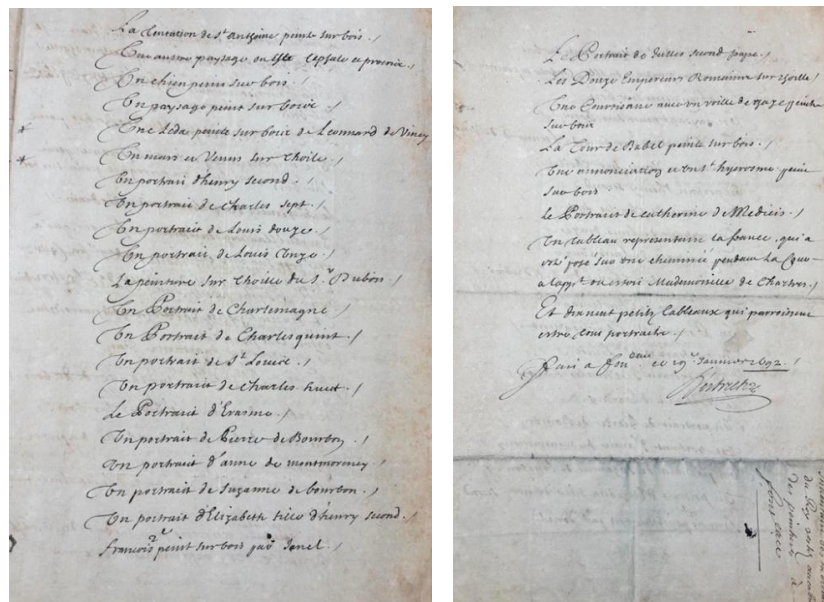 La tentation de S.t Antoine peinte sur bois ./
Une autre paysage, ou
Un chien peint sur bois ./
Un paysage peint sur bois ./
* Une Leda peinte sur bois de Leonnard de Vincy
* Un mars et Venus sur thoile ./
Un portrait d'henry second ./
Un portrait de Charles sept ./
Un portrait de Louis douze ./
Un portrait de Louis Unze ./
La peinture sur thoile du S.r Dubon ./
Un Portrait de Charlemagne /
Un Portrait de Charlesquint ./
Un portrait de S.t Louis ./
Un portrait de Charles huict ./
Le Portrait d'Erasme ./
Un portrait de Pierre de Bourbon ./
Un portrait d'anne de montmorency ./
Un portrait de Suzanne de bourbon ./
Un portrait d'Elizabeth fille d'henry second ./
francois 2 peint sur bois par Janel ./
Le Portrait de Julles second pape ./
Les Douze Empereurs Romains sur thoille ./
Une Courtisane avec un voille de gaze peinte
sur bois
La Tour de Babel peinte sur bois ./
Une annonciation et un S.t hyerosme peint
sur bois
Le Portrait de catherine de Medicis ./
Un tableau representant la france, qui a
esté posé sur une cheminée pendant La
Mademoiselle de Chartres /
Et dix neuf petits tableaux qui paroissent
estre tous portraits ./
fait a fon.eau ce 29.e Janvier 1692 ./
du Roy
des peintures à
fone.eau